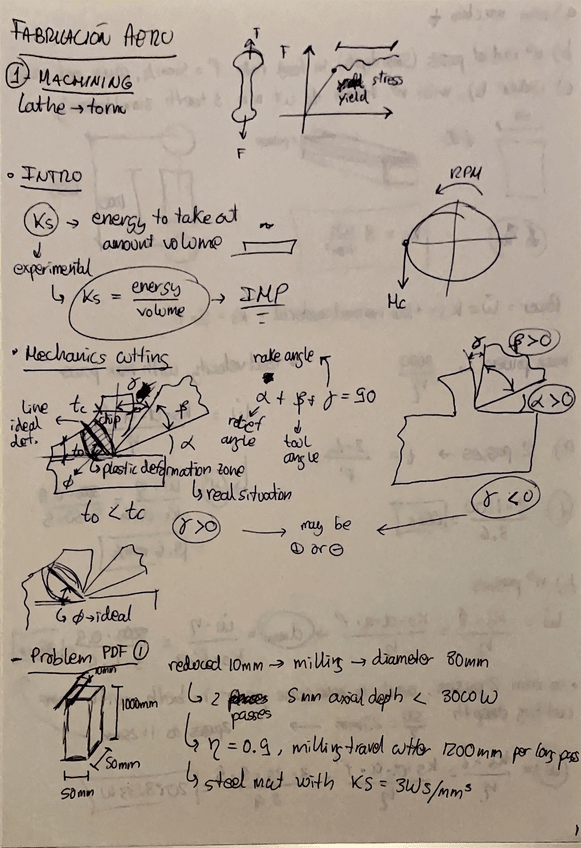 FABRICACIÓN AERO
① - MACHINING
Lathe → torno
F
F
F
stress
yield
• INTRO
Ks → energy to take out
amount volume
experimental
↳ Ks = energy / volume → IMP
RPM
Mc
• Mechanics cutting
line
ideal
def.
tc
γ
chip
β
α
to
φ
↳ plastic deformation zone
↳ real situation
to < tc
rake angle
α + β + γ = 90
relief
angle
tool
angle
γ
β>0
α>0
γ>0 → may be ← γ<0
⊕ or ⊖
↳ φ→ideal
- Problem PDF ①
10mm
1000mm
50mm
50mm
reduced 10mm → milling → diameter 80mm
↳ 2 passes 5mm axial depth < 3000W
↳ η = 0.9, milling travel cutter 1200mm per long pass
↳ steel mat with KS = 3Ws/mm³
1